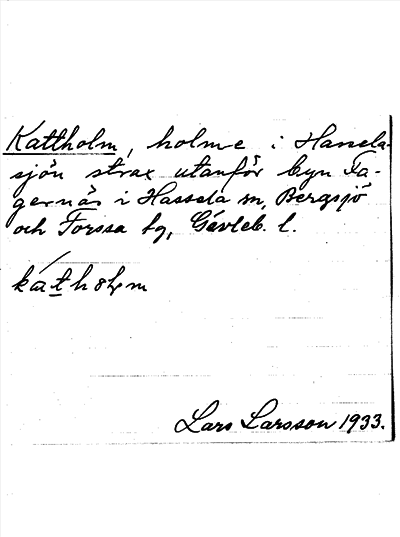 Kattholm, holme i Hassela-
sjön strax utanför byn Fa-
gernäs i Hassela sn, Bergsjö
och Forssa tg, Gävleb. l.
Lars Larsson 1933.